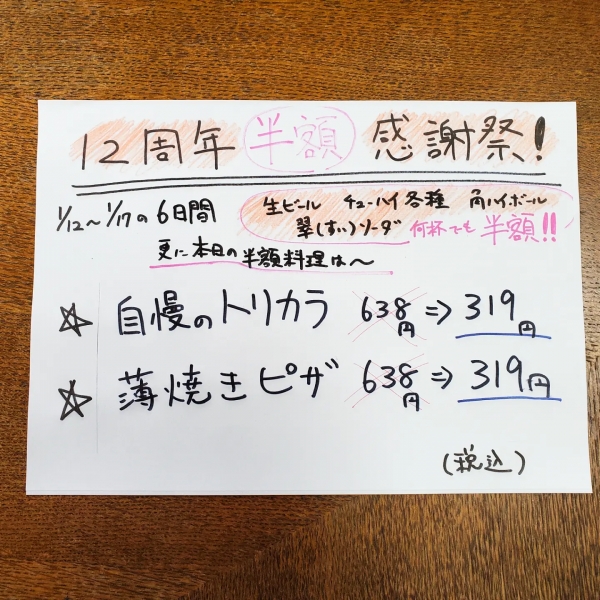 12周年 半額 感謝祭!
1/12～1/17の6日間
生ビール チューハイ各種 角ハイボール
翠(すい)ソーダ 何杯でも 半額!!
更に本日の半額料理は～
☆ 自慢のトリカラ 638円⇒319円
☆ 薄焼きピザ 638円⇒319円
(税込)